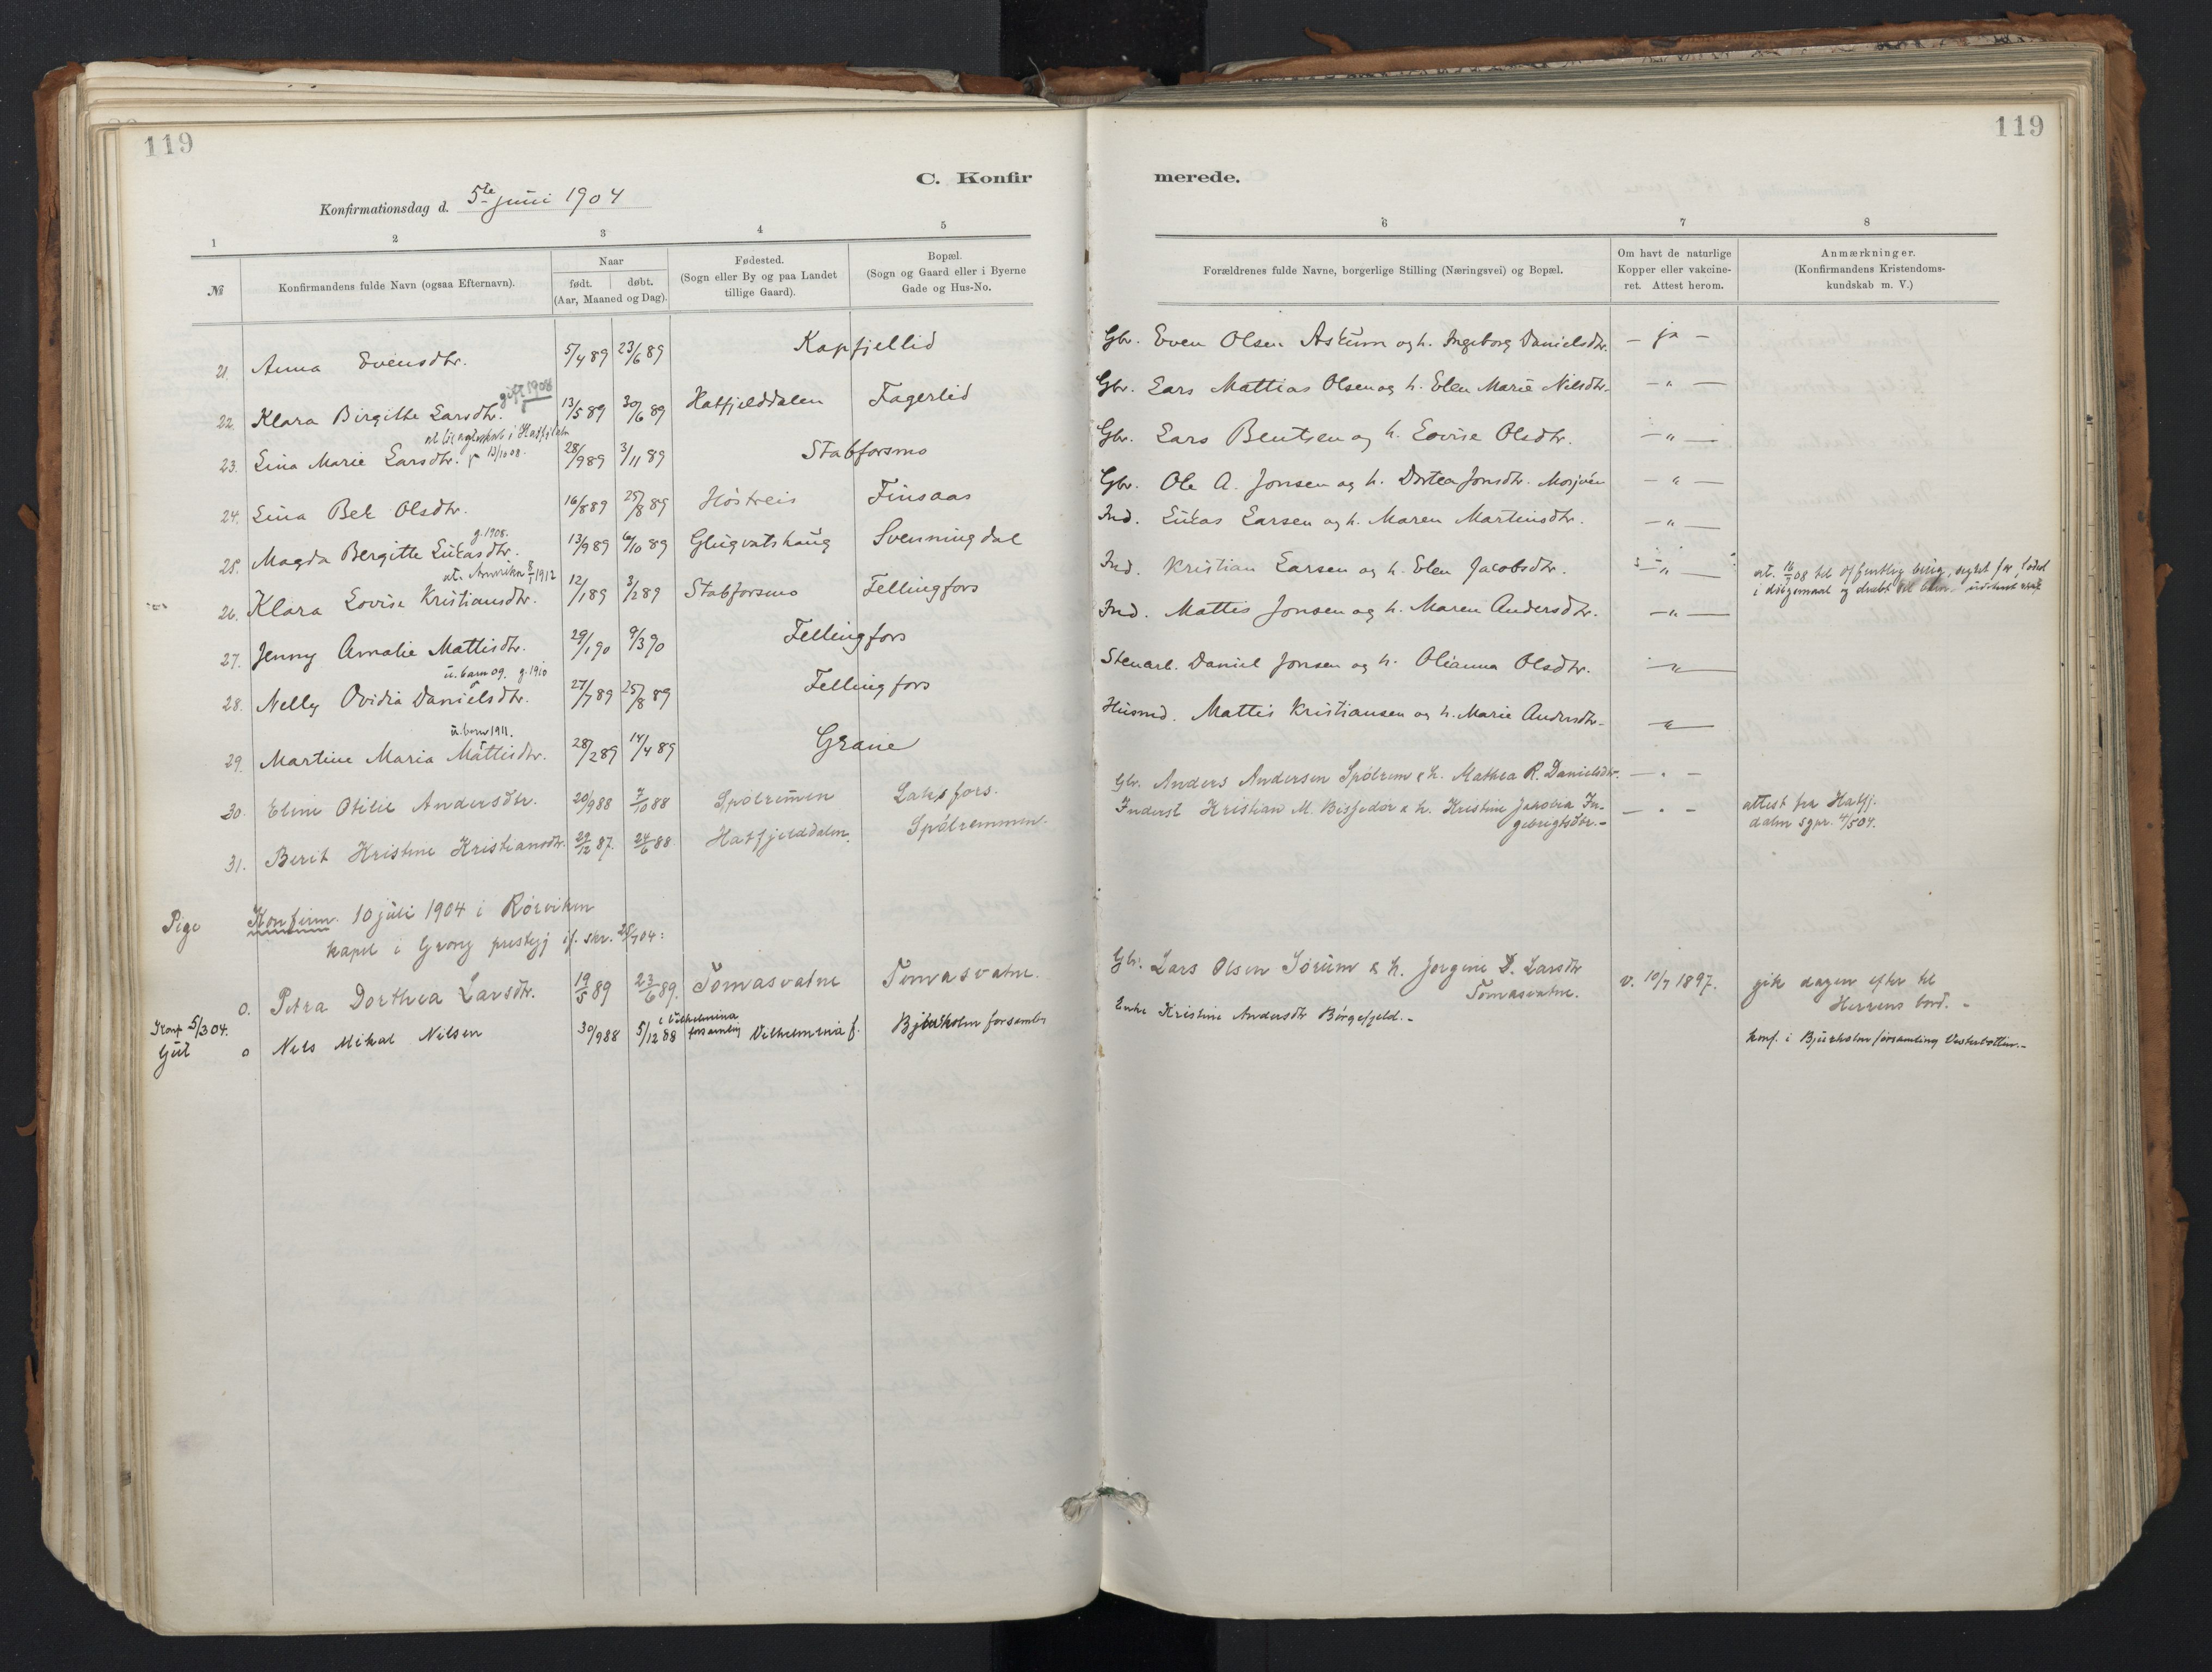 119
119
C. Konfir
merede.
Konfirmationsdag d. 5te juni 1904
1 2 3 4 5
6 7 8
№
Konfirmandens fulde Navn (ogsaa Efternavn).
Naar
født. døbt.
(Aar, Maaned og Dag).
Fødested.
(Sogn eller By og paa Landet
tillige Gaard).
Bopæl.
(Sogn og Gaard eller i Byerne
Gade og Hus-No.
Forældrenes fulde Navne, borgerlige Stilling (Næringsvei) og Bopæl.
Om havt de naturlige
Kopper eller vakcine-
ret. Attest herom.
Anmærkninger.
(Konfirmandens Kristendoms-
kundskab m. V.)
21. Anna Evensdtr. 5/4 89 23/6 89 Kapfjellid Gbr. Even Olsen Askurn og h. Ingeborg Danielsdtr. – ja –
gift 1908
22. Klara Birgitte Larsdtr. 13/5 89 30/6 89 Hatfjelddalen Fagerlid Gbr. Lars Mattias Olsen og h. Elen Marie Nilsdtr. – " –
13/10 08.
23. Lina Marie Larsdtr. 28/9 89 3/11 89 Stabforsmo Gbr. Lars Bentsen og h. Lovise Olsdtr. – " –
24. Lina Bek Olsdtr. 16/8 89 25/8 89 Høstreis Finsaas Gbr. Ole A. Jonsen og h. Dortea Jonsdtr. Mosjøen – " –
g. 1908.
25. Magda Bergitte Lukasdtr. 13/9 89 6/10 89 Glugvatshaug Svenningdal Ind. Lukas Larsen og h. Maren Martinsdtr. – " –
at. Amerika 8/1 1912
26. Klara Lovise Kristiansdtr. 12/1 89 3/2 89 Stabforsmo Fellingfors Ind. Kristian Larsen og h. Elen Jacobsdtr. – " –
27. Jenny Amalie Mattisdtr. 29/1 90 9/3 90 Fellingfors Ind. Mattis Jonsen og h. Maren Andersdtr. – " –
u. barn 09. g. 1910
28. Nelly Ovidia Danielsdtr. 27/7 89 25/8 89 Fellingfors Stenarb. Daniel Jonsen og h. Olianna Olsdtr. – " –
u. barn 1911.
29. Martine Maria Mattisdtr. 28/2 89 14/4 89 Grane Husmd. Mattis Kristiansen og h. Marie Andersdtr. – " –
30. Eline Otilie Andersdtr. 20/9 88 7/10 88 Spølremen Laksfors. Gbr. Anders Andersen Spølrem & h. Mathea R. Danielsdtr. – " –
31. Berit Kristine Kristiansdtr. 29/12 87. 24/6 88. Hatfjelddalen. Spølremmen. Inderst Kristian M. Bisseder & h. Kristine Jakobia In-
gebrigtsdtr. – – " – attest fra Hatfj.
dalen sgpr. 4/5 04.
Pige Konfirm. 10 juli 1904 i Rörviken
kapel i Grong prestgj if. skr. 25/7 04:
0. Petra Dorthea Larsdtr. 19/5 89 23/6 89. Tomasvatne Tomasvatne. Gbr. Lars Olsen Sörum & h. Jorgine D. Larsdtr
Tomasvatne. v. 10/7 1897. gik dagen efter til
Herrens bord. –
Konf 5/3 04.
Gut 0 Nels Mikal Nilsen 30/9 88 5/12 88 i Vilhelmina
forsamling Vilhelmina f. Bjurholm forsamlin Enke Kristine Andersdtr Børgefjeld. – konf. i Bjurholm forsamling Vesterbotten. –